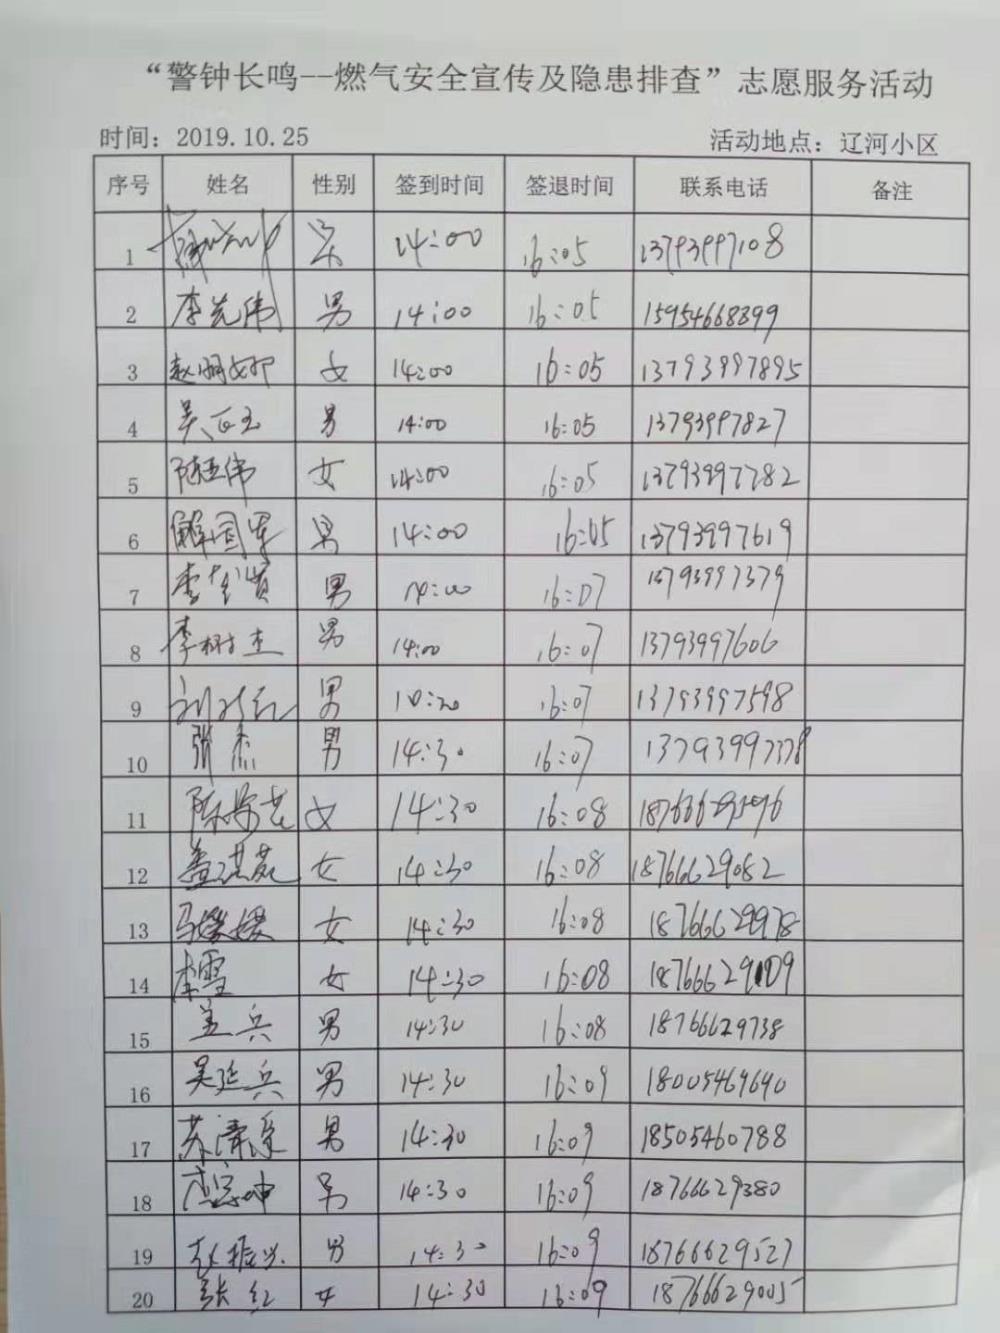 “警钟长鸣--燃气安全宣传及隐患排查”志愿服务活动
时间：2019.10.25 活动地点：辽河小区
序号 姓名 性别 签到时间 签退时间 联系电话 备注
1 14:00 16:05 13793997108
2 李光伟 男 14:00 16:05 15954668399
3 女 14:00 16:05 13793997895
4 吴正玉 男 14:00 16:05 13793997827
5 陈亚伟 女 14:00 16:05 13793997282
6 解国军 男 14:00 16:05 13793997619
7 男 14:00 16:07 13793997379
8 李树杰 男 14:00 16:07 13793997606
9 男 16:07 13793997598
10 张杰 男 14:30 16:07 13793997378
11 女 14:30 16:08
12 女 14:30 16:08 18766629082
13 马媛媛 女 14:30 16:08 18766629978
14 李雪 女 14:30 16:08 18766629109
15 兵 男 14:30 16:08 18766629738
16 吴延兵 男 14:30 16:09 18005469690
17 苏清 男 14:30 16:09 18505460788
18 男 14:30 16:09 18766629380
19 赵振兴 男 14:30 16:09 18766629527
20 张红 女 14:30 16:09 18766629005